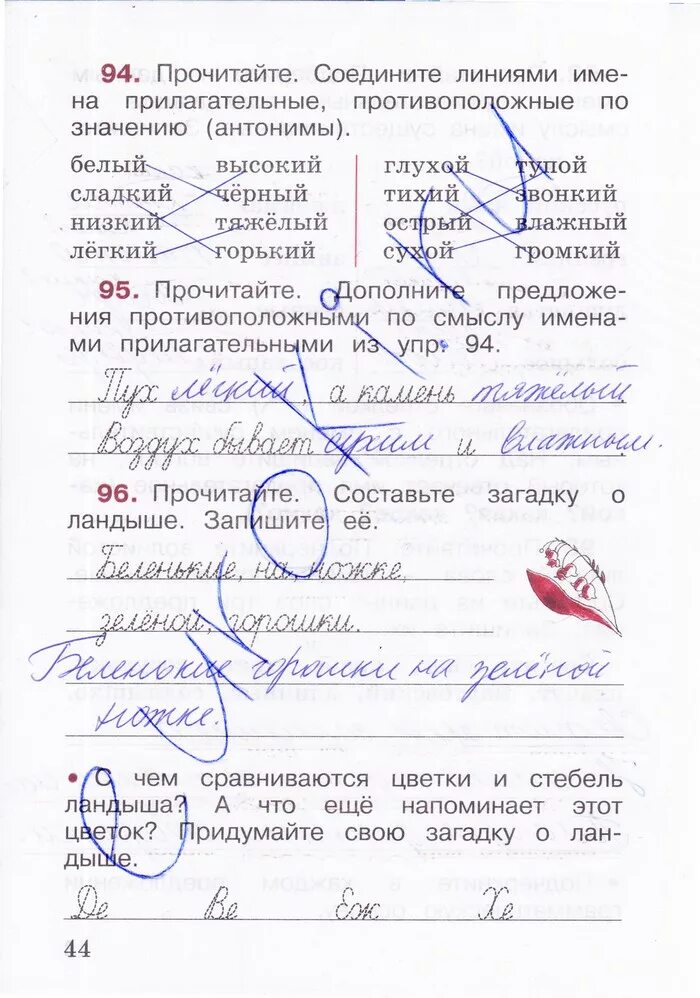 94. Прочитайте. Соедините линиями име-
на прилагательные, противоположные по
значению (антонимы).
белый высокий глухой тупой
сладкий чёрный тихий звонкий
низкий тяжёлый острый влажный
лёгкий горький сухой громкий
95. Прочитайте. Дополните предложе-
ния противоположными по смыслу имена-
ми прилагательными из упр. 94.
Пух лёгкий, а камень тяжелый
Воздух бывает сухим и влажным.
96. Прочитайте. Составьте загадку о
ландыше. Запишите её.
Беленькие, на, ножке,
зелёной, горошки.
Беленькие горошки на зелёной
ножке.
• С чем сравниваются цветки и стебель
ландыша? А что ещё напоминает этот
цветок? Придумайте свою загадку о лан-
дыше.
Де Ве Еж Хе
44